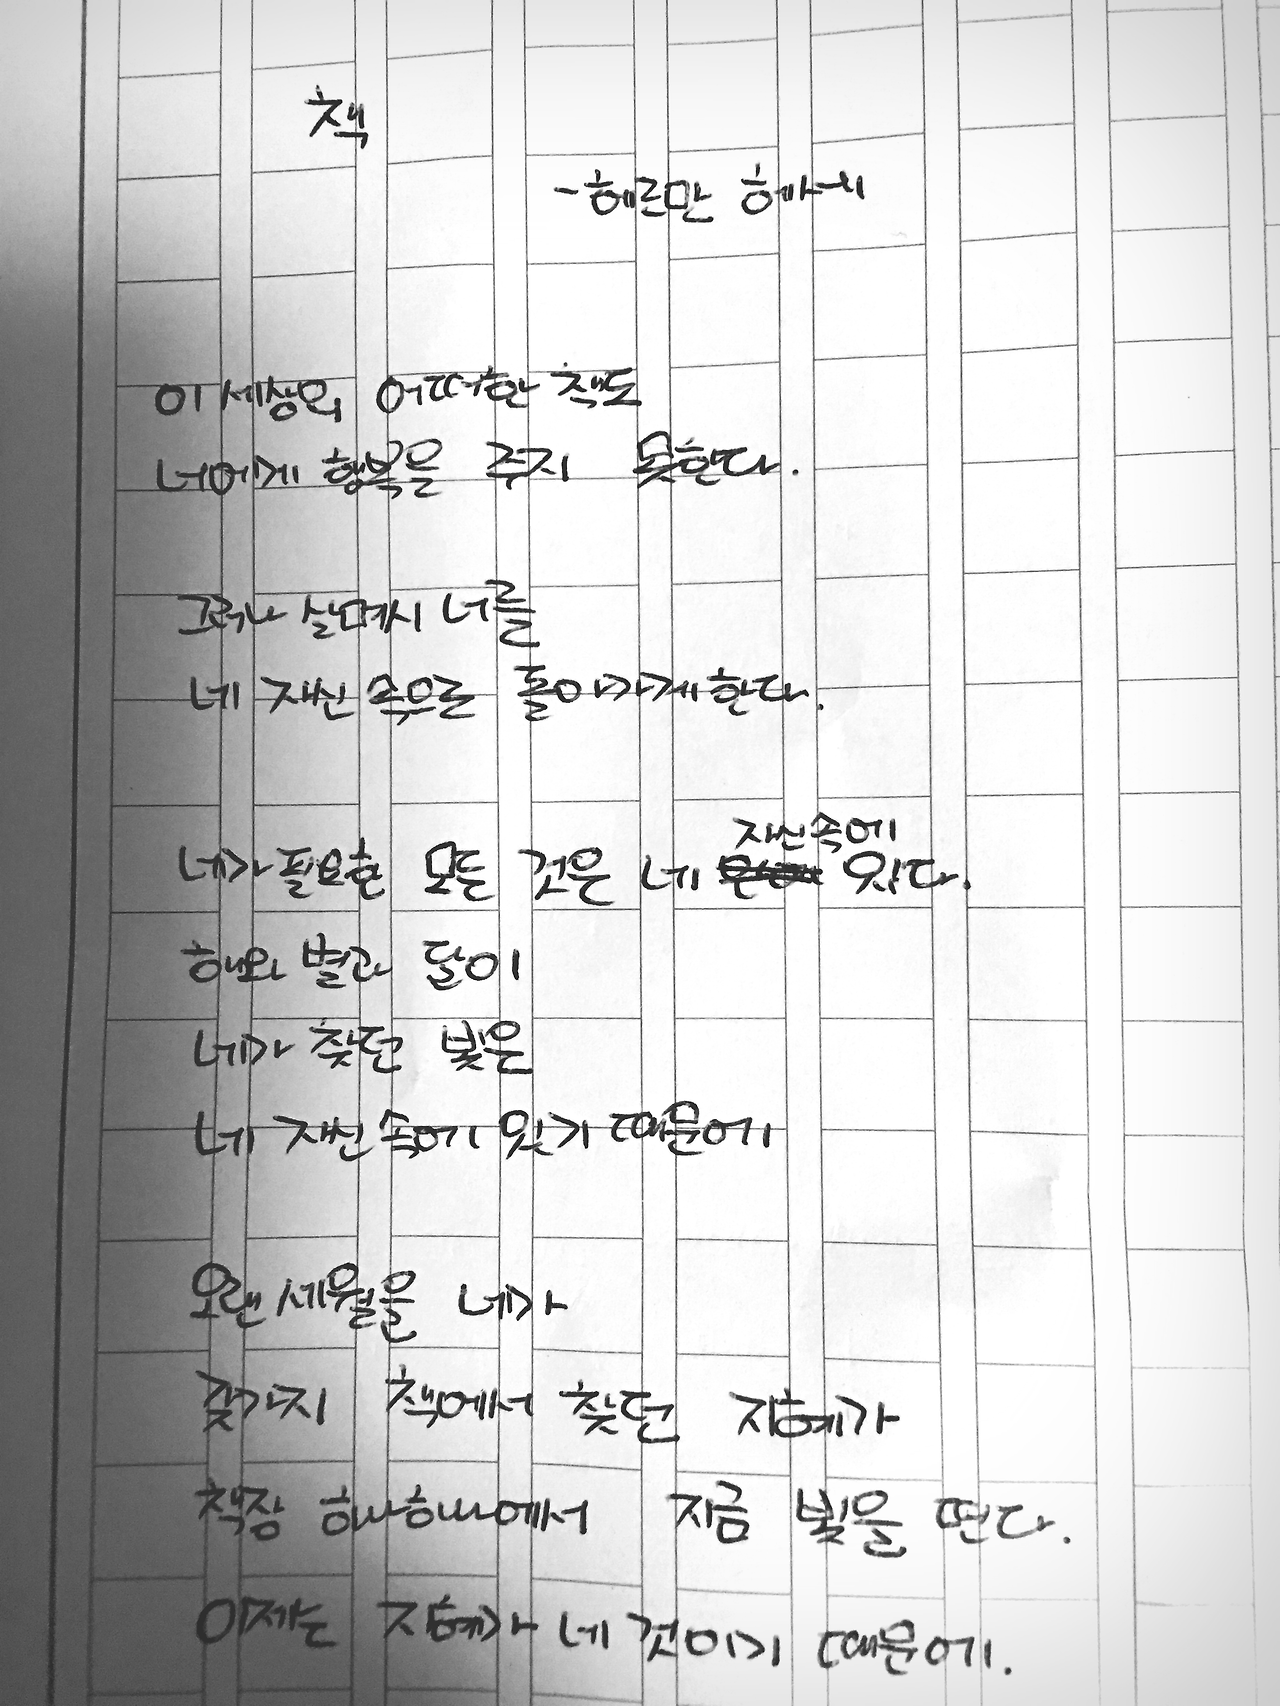 책
- 헤르만 헤세
이 세상의 어떠한 책도
너에게 행복을 주지 못한다.
그러나 살며시 너를
네 자신 속으로 돌아가게 한다.
네가 필요한 모든 것은 네 자신 속에 있다.
해와 별과 달이
네가 찾던 빛은
네 자신 속에 있기 때문에
오랜 세월을 네가
갖가지 책에서 찾던 지혜가
책장 하나하나에서 지금 빛을 띤다.
이제는 지혜가 네 것이기 때문에.